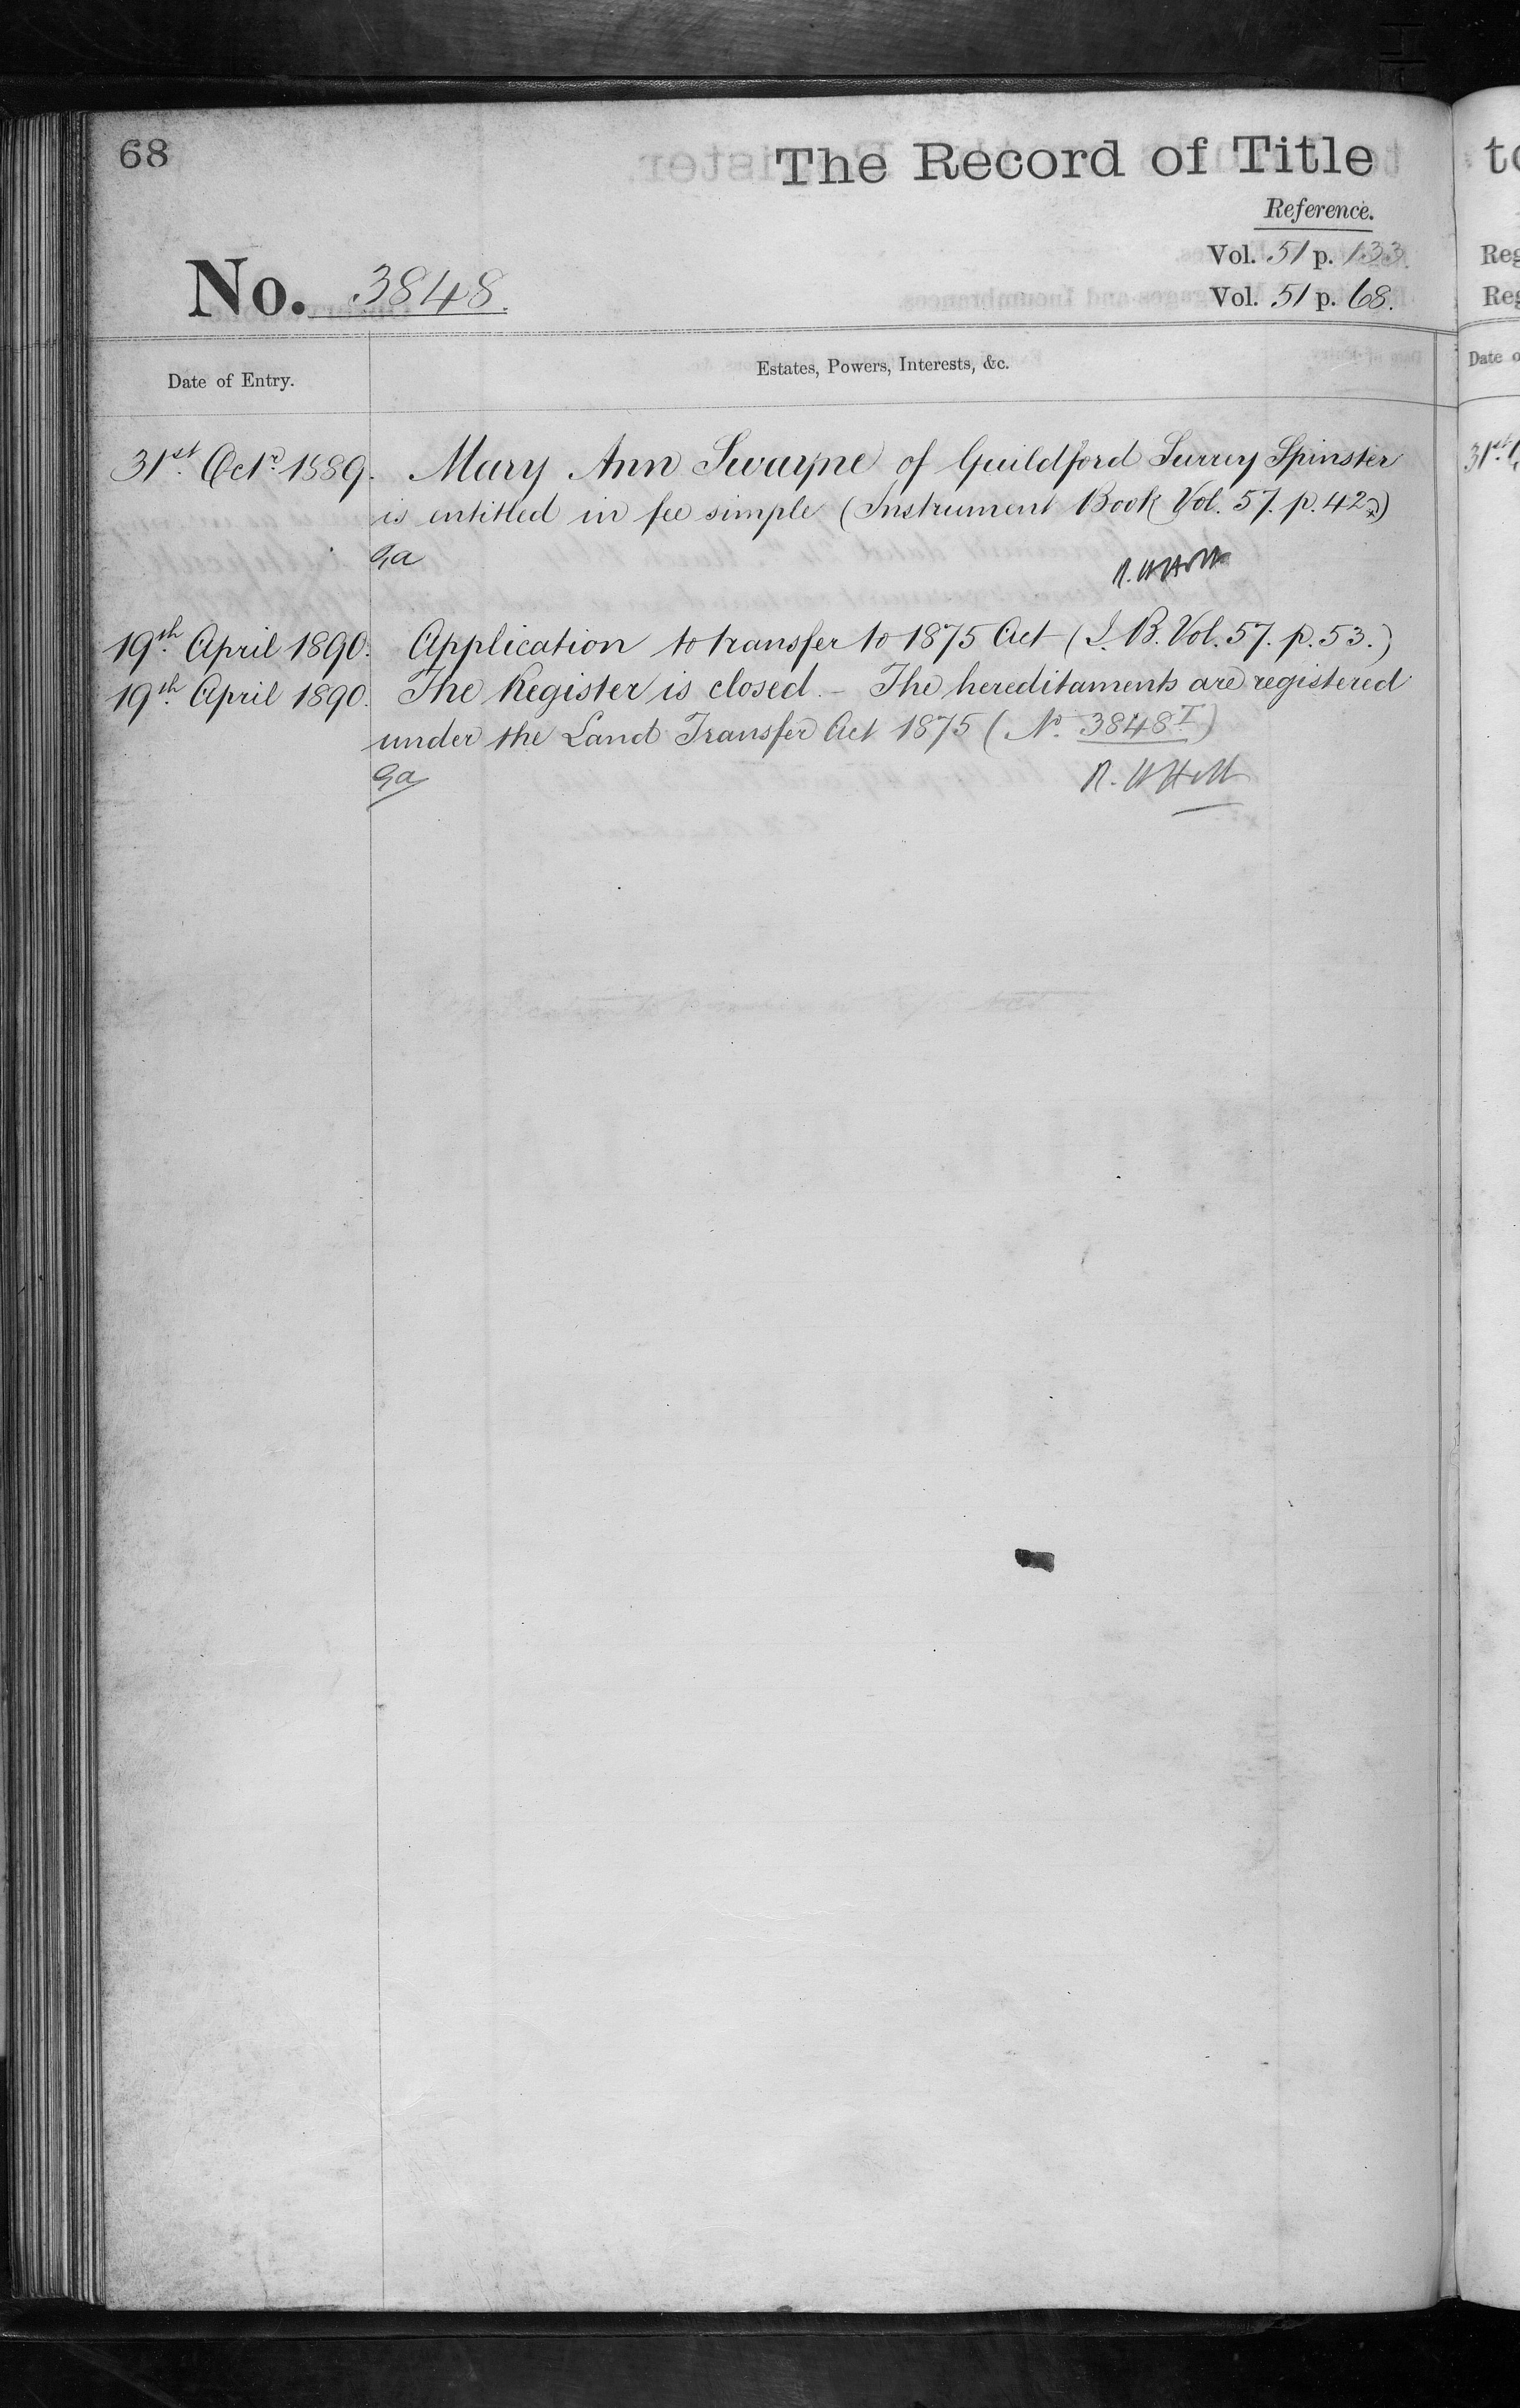 68
The Record of Title
Reference.
Vol. 51 p. 133.
No. 3848.
Vol. 51 p. 68.
Date of Entry.
Estates, Powers, Interests, &c.
31st. Octr. 1889. Mary Ann Swayne of Guildford Surrey Spinster
is entitled in fee simple (Instrument Book Vol. 57. p. 42)
19th. April 1890. Application to transfer to 1875 Act (I. B. Vol. 57. p. 53.)
19th. April 1890. The Register is closed. - The hereditaments are registered
under the Land Transfer Act 1875 (No. 3848 I)
to
Reg
Reg
Date o
31st.